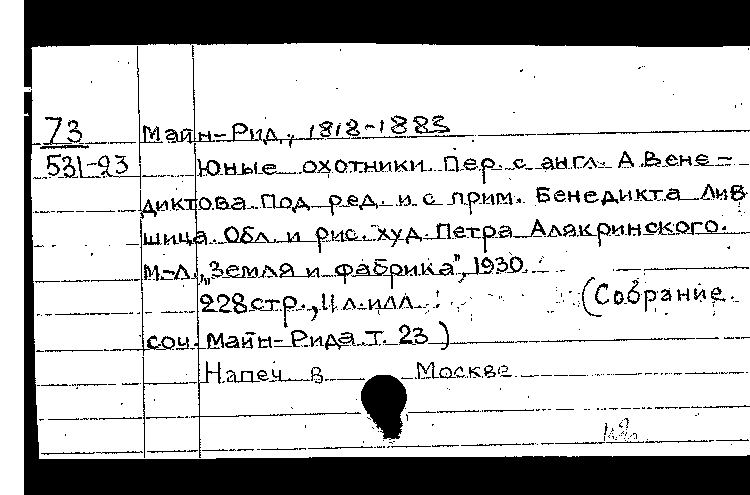 73 Майн-Рид, 1818-1883
531-23 Юные охотники. Пер. с англ. А. Вене-
диктова. Под ред. и с прим. Бенедикта Лив
шица. Обл. и рис. худ. Петра Алякринского.
М.-Л. „Земля и фабрика", 1930.
228 стр., 11 л. илл. (Собрание
соч. Майн-Рида т. 23)
Напеч. в Москве